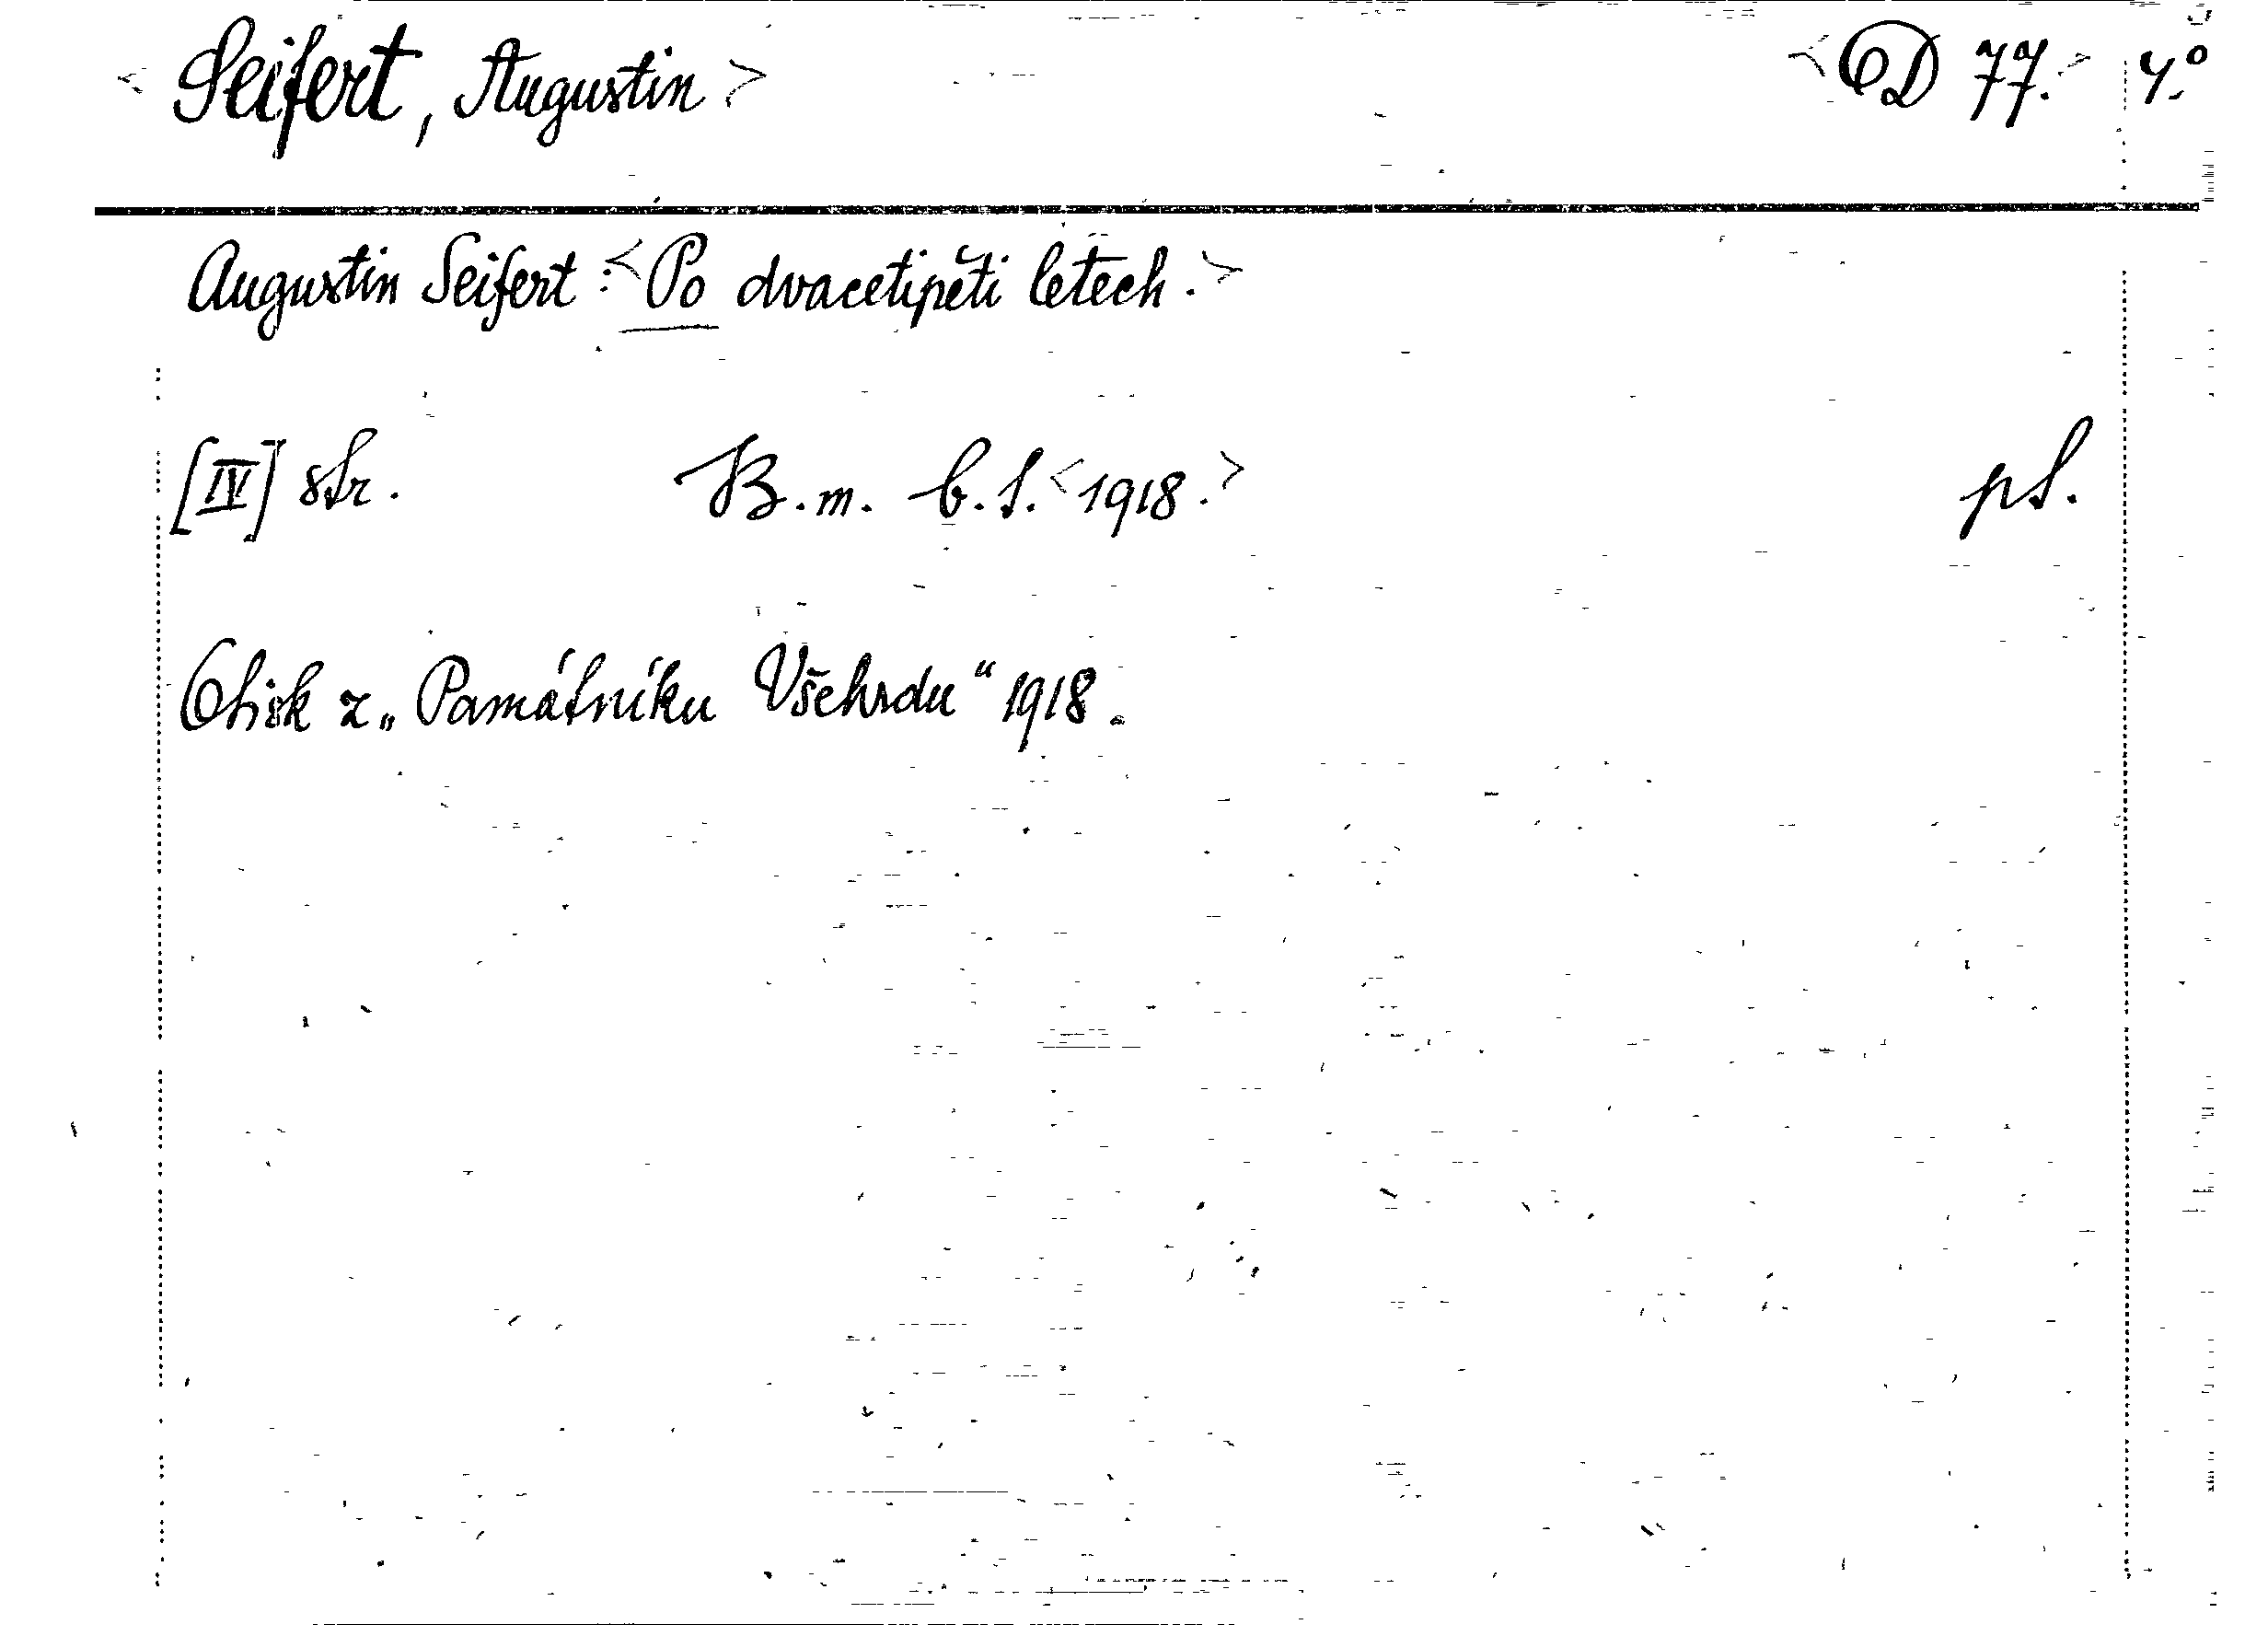 < Seifert, Augustin > < D 77. > 4.°
Augustin Seifert: < Po dvacetipěti letech. >
[IV] str. B. m. b. l. < 1918. > pl.
Otisk z „Památníku Všehrdu“ 1918.